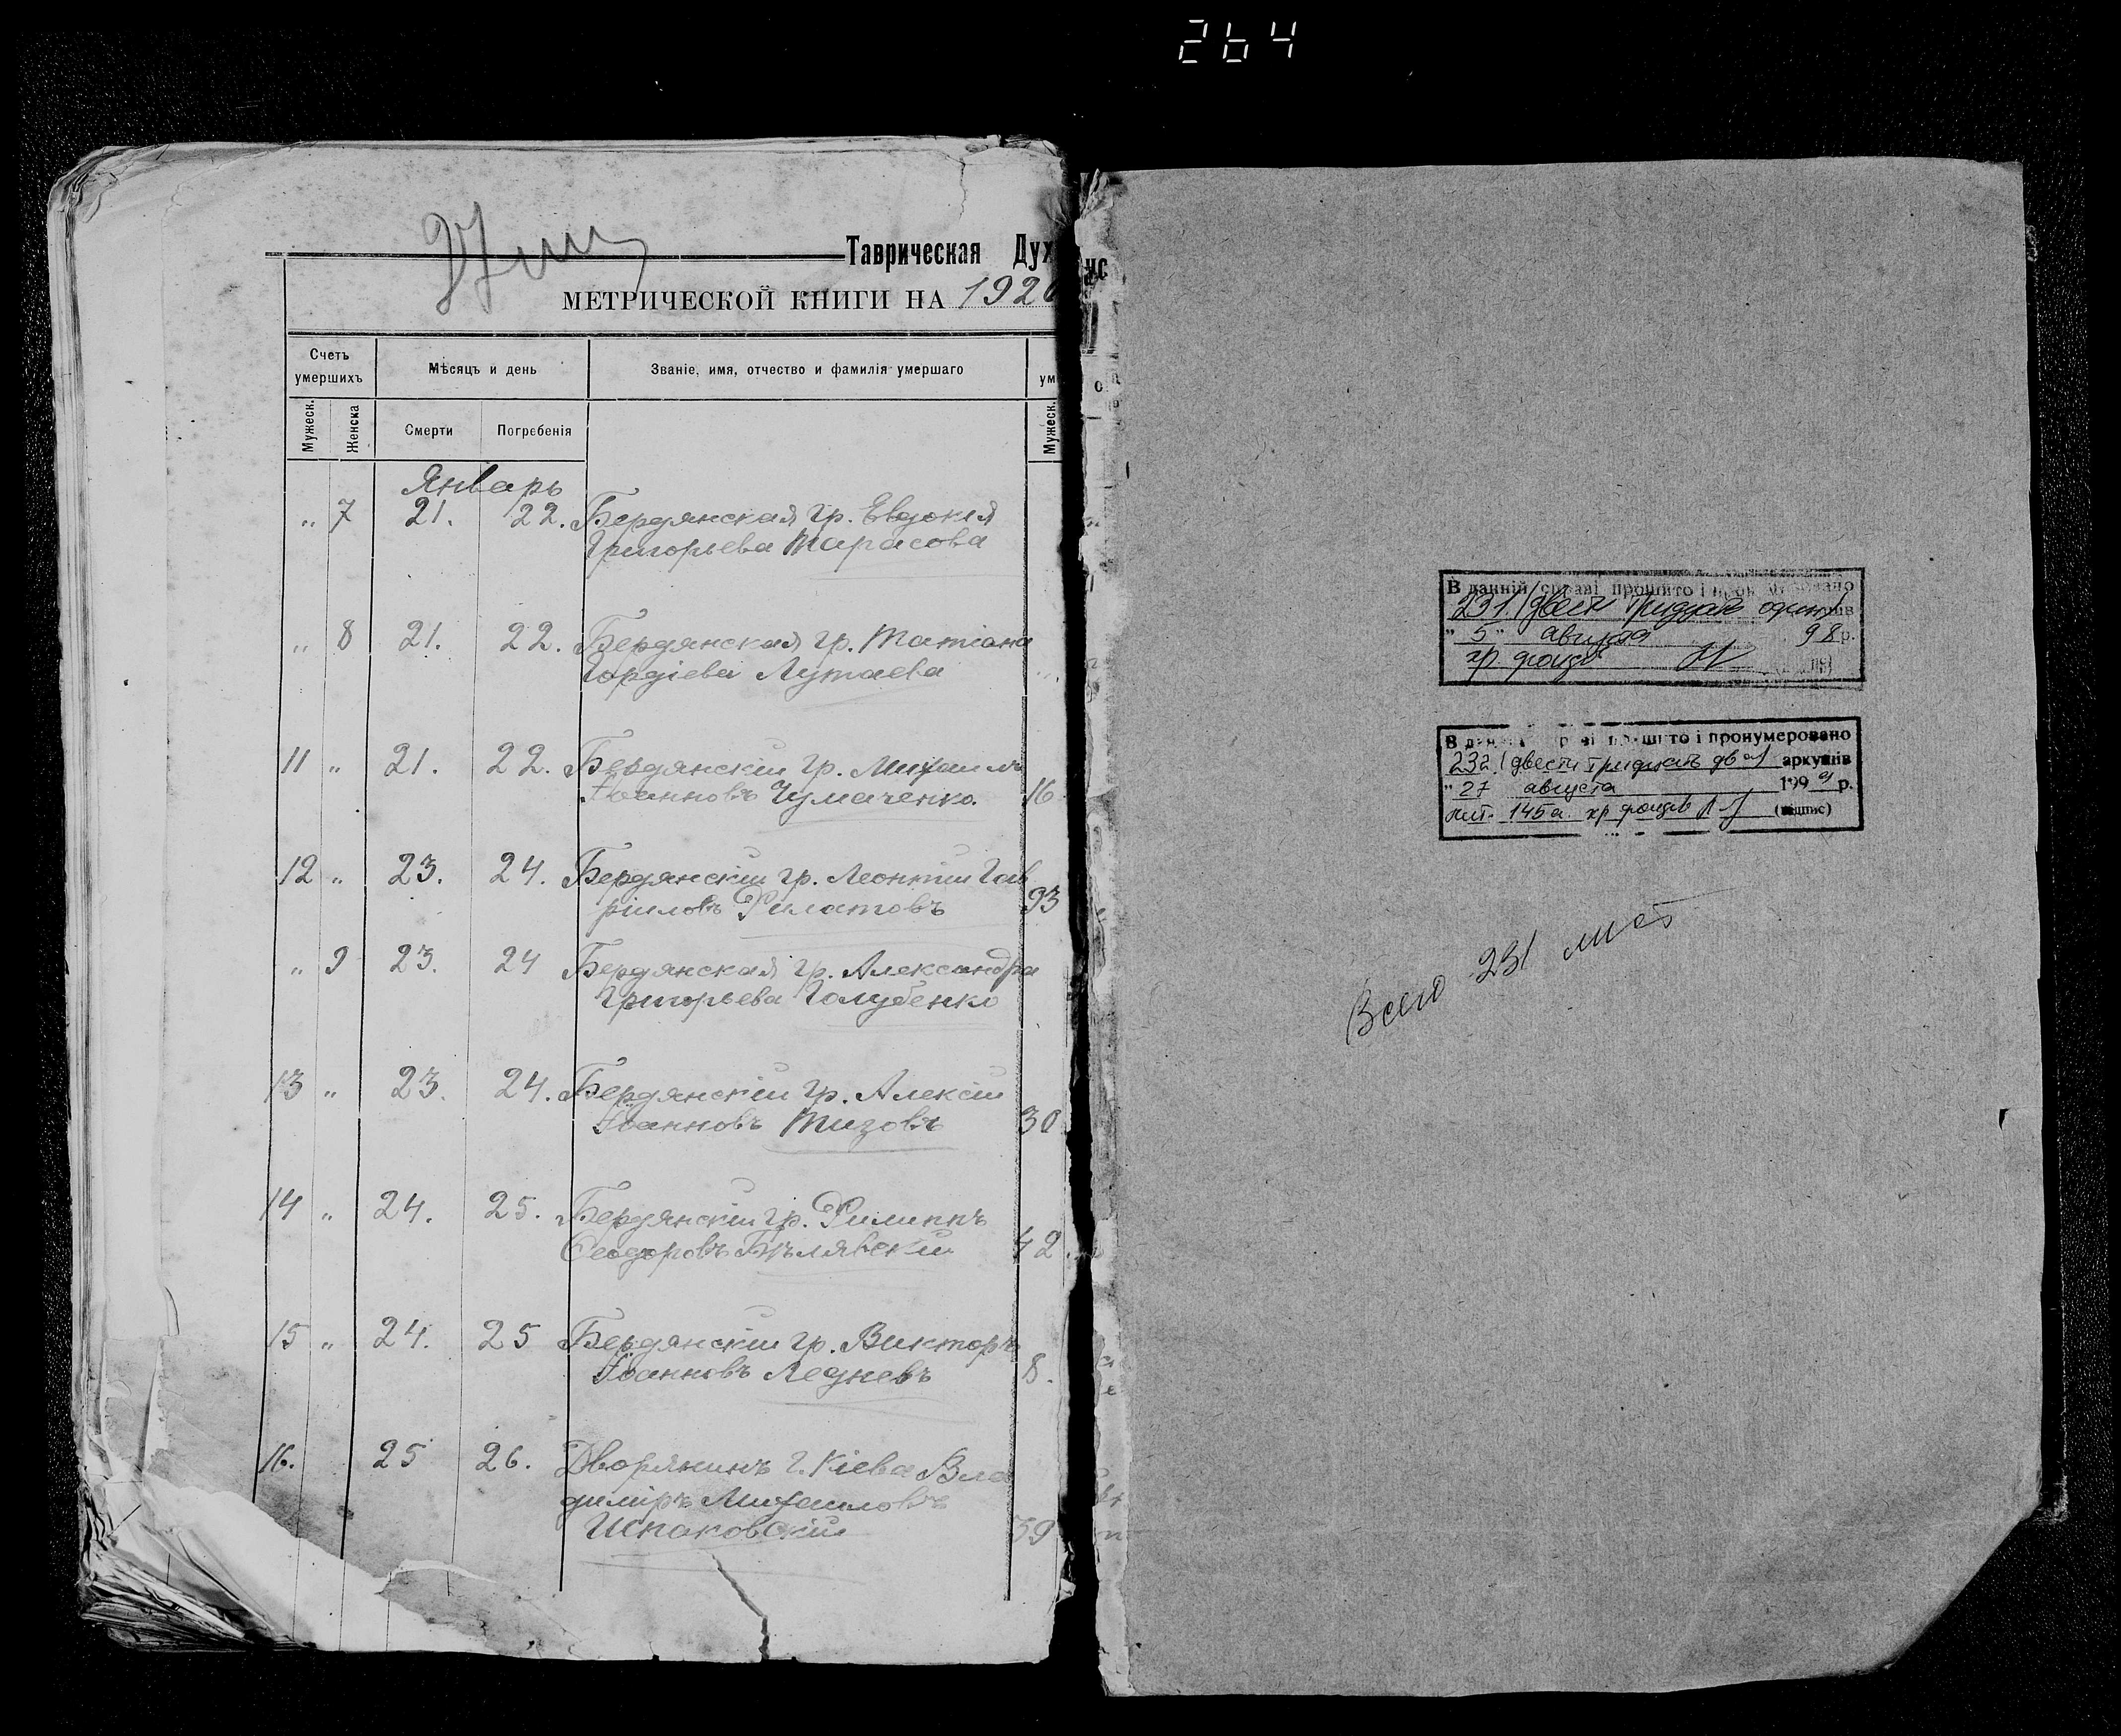 264
Таврическая Дух
МЕТРИЧЕСКОЙ КНИГИ НА 1920
Счетъ умершихъ
Мѣсяцъ и день
Званіе, имя, отчество и фамилія умершаго
ум
Мужеск.
Женска
Смерти
Погребенія
Мужеск.
Январь
„ 7 21. 22. Бердянская гр. Евдокия
Григорьева Тарасова
„ 8 21. 22. Бердянская гр. Татіана
Гордіева Лутаева
11 „ 21. 22. Бердянскій гр. Михаилъ
Іоанновъ Чумаченко. 16
12 „ 23. 24. Бердянскій гр. Леонтій Гав
ріиловъ Филатовъ 93
„ 9 23. 24 Бердянская гр. Александра
Григорьева Голубенко
13 „ 23. 24. Бердянскій гр. Алексій
Іоанновъ Тизовъ 30
14 „ 24. 25. Бердянскій гр. Филиппъ
Ѳеодоровъ Бѣлявскій 42
15 „ 24. 25 Бердянскій гр. Викторъ
Іоанновъ Ледневъ 8.
16. 25 26. Дворянинъ г. Кіева Вла
димиръ Михаиловъ
Шпаковскій 59
В данній справі прошито і пронумеровано
231 (двести тридцать один)
" 5 " августа 98 р.
хр фонда
В даній справі прошито і пронумеровано
232 (двести тридцать два) аркушів
" 27 августа 1999 р.
лит. 145а хр фондів (підпис)
Всего 231 лист